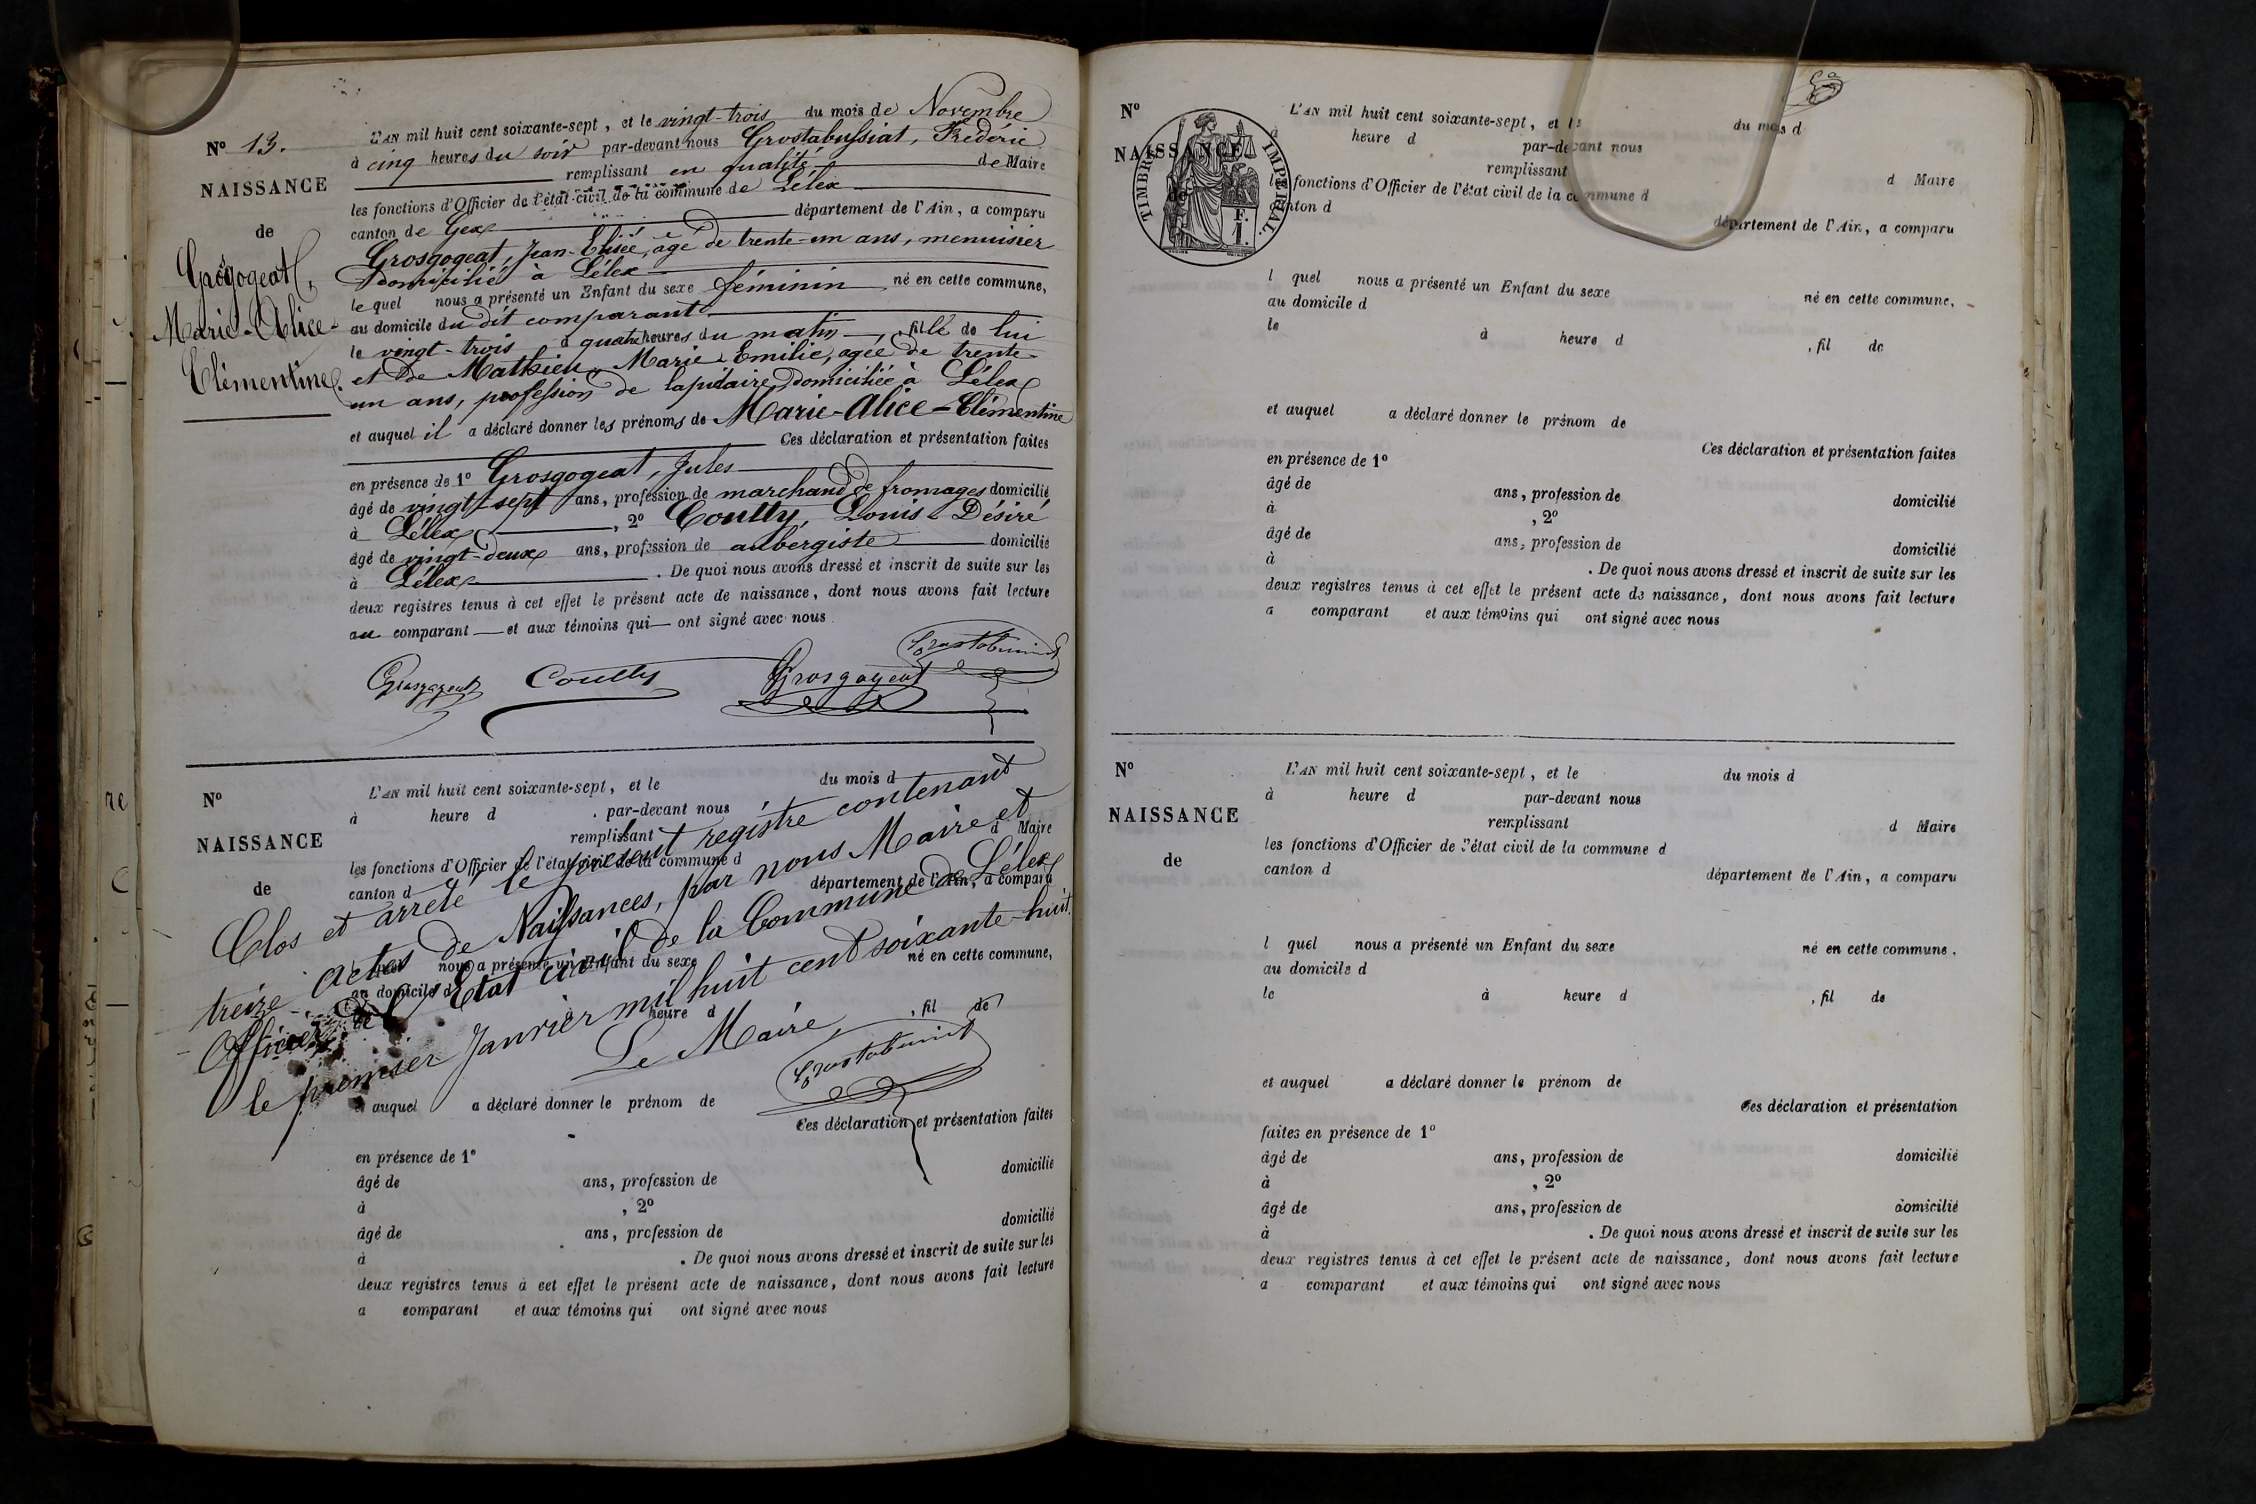 N° 13.
NAISSANCE
de
Grosgogeat,
Marie-Alice-
Clémentine.
L'AN mil huit cent soixante-sept, et le vingt-trois du mois de Novembre
à cinq heures du soir par-devant nous Grostabussiat, Frédéric
remplissant en qualité de Maire
les fonctions d'Officier de l'état civil de la commune de Lélex
canton de Gex département de l'Ain, a comparu
Grosgogeat, Jean-Elisée, âgé de trente-un ans, menuisier
domicilié à Lélex
le quel nous a présenté un Enfant du sexe féminin né en cette commune,
au domicile du dit comparant
le vingt-trois à quatre heures du matin, fille de lui
et de Mathieu, Marie-Emilie, agée de trente-
un ans, profession de lapidaire, domiciliée à Lélex
et auquel il a déclaré donner les prénoms de Marie-Alice-Clémentine
Ces déclaration et présentation faites
en présence de 1° Grosgogeat, Jules
âgé de vingt-sept ans, profession de marchand de fromages domicilié
à Lélex, 2° Coutty, Louis-Désiré
âgé de vingt-deux ans, profession de aubergiste domicilié
à Lélex. De quoi nous avons dressé et inscrit de suite sur les
deux registres tenus à cet effet le présent acte de naissance, dont nous avons fait lecture
au comparant et aux témoins qui ont signé avec nous
Grosgogeat Coutty Grosgogeat
N°
NAISSANCE
de
L'AN mil huit cent soixante-sept, et le du mois d
à heure d par-devant nous
remplissant d Maire
les fonctions d'Officier de l'état civil de la commune d
canton d département de l'Ain, a comparu
Clos et arrêté le présent registre contenant
treize actes de Naissances, par nous Maire et
Officier de l'Etat civil de la Commune de Lélex
le premier Janvier mil huit cent soixante-huit.
Le Maire
l quel nous a présenté un Enfant du sexe né en cette commune,
au domicile d
heure d , fil de
et auquel a déclaré donner le prénom de
Ces déclaration et présentation faites
en présence de 1°
âgé de ans, profession de domicilié
à , 2°
âgé de ans, profession de domicilié
à . De quoi nous avons dressé et inscrit de suite sur les
deux registres tenus à cet effet le présent acte de naissance, dont nous avons fait lecture
a comparant et aux témoins qui ont signé avec nous
N°
NAISSANCE
de
TIMBRE IMPÉRIAL.
L'AN mil huit cent soixante-sept, et le du mois d
à heure d par-devant nous
remplissant d Maire
les fonctions d'Officier de l'état civil de la commune d
canton d département de l'Ain, a comparu
l quel nous a présenté un Enfant du sexe né en cette commune,
au domicile d
le à heure d , fil de
et auquel a déclaré donner le prénom de
Ces déclaration et présentation faites
en présence de 1°
âgé de ans, profession de domicilié
à , 2°
âgé de ans, profession de domicilié
à . De quoi nous avons dressé et inscrit de suite sur les
deux registres tenus à cet effet le présent acte de naissance, dont nous avons fait lecture
a comparant et aux témoins qui ont signé avec nous
N°
NAISSANCE
de
L'AN mil huit cent soixante-sept, et le du mois d
à heure d par-devant nous
remplissant d Maire
les fonctions d'Officier de l'état civil de la commune d
canton d département de l'Ain, a comparu
l quel nous a présenté un Enfant du sexe né en cette commune.
au domicile d
le à heure d , fil de
et auquel a déclaré donner le prénom de
Ces déclaration et présentation
faites en présence de 1°
âgé de ans, profession de domicilié
à , 2°
âgé de ans, profession de domicilié
à . De quoi nous avons dressé et inscrit de suite sur les
deux registres tenus à cet effet le présent acte de naissance, dont nous avons fait lecture
a comparant et aux témoins qui ont signé avec nous